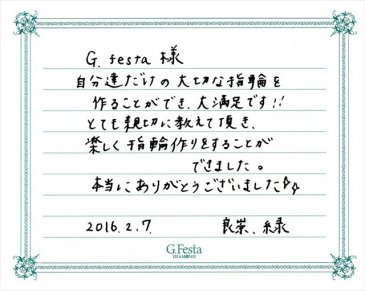 G. festa 様
自分達だけの大切な指輪を
作ることができ、大満足です!!
とても親切に教えて頂き、
楽しく指輪作りをすることが
できました。
本当にありがとうございました
2016.2.7. 良栄、緑
G.Festa
DIAMOND